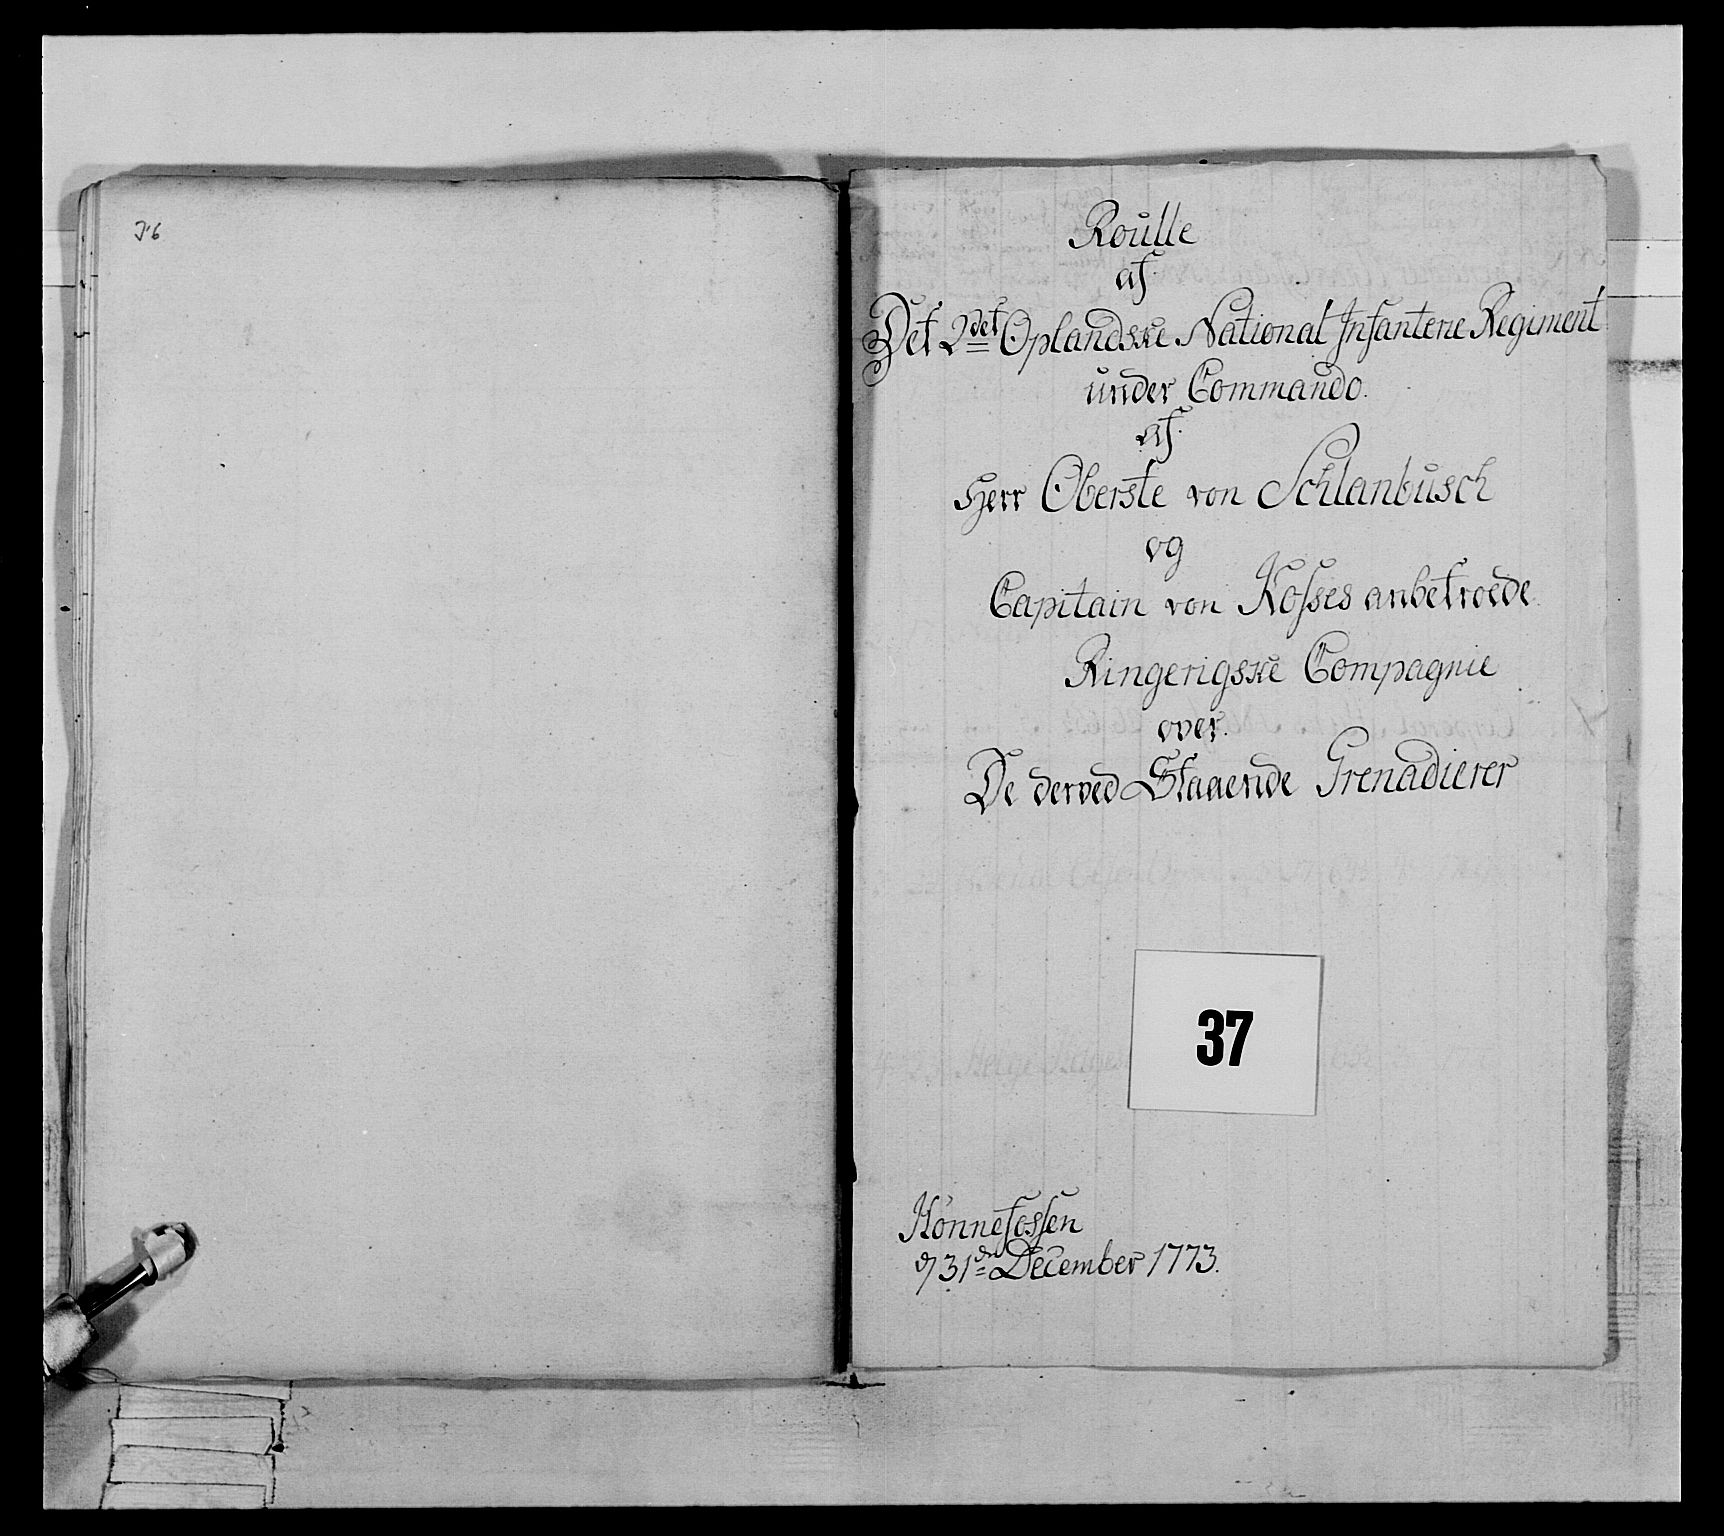 36
Roulle
af
Det 2det Oplandske National Infanterie Regiment
under Commando.
af.
Herr Oberste von Schlanbusch
og
Capitain von Kosses anbetroede
Ringerigske Compagnie
over.
De derved Staaende Grenadierer
37
Hönnefossen
d 31dn December 1773.